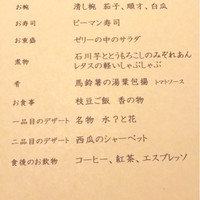 お椀 清し椀 茄子、順才、白瓜
お寿司 ピーマン寿司
お重盛 ゼリーの中のサラダ
煮物 石川芋ととうもろこしのみぞれあん
レタスの軽いしゃぶしゃぶ
肴 馬鈴薯の湯葉包揚 トマトソース
お食事 枝豆ご飯 香の物
一品目のデザート 名物 水?と花
二品目のデザート 西瓜のシャーベット
食後のお飲物 コーヒー、紅茶、エスプレッソ